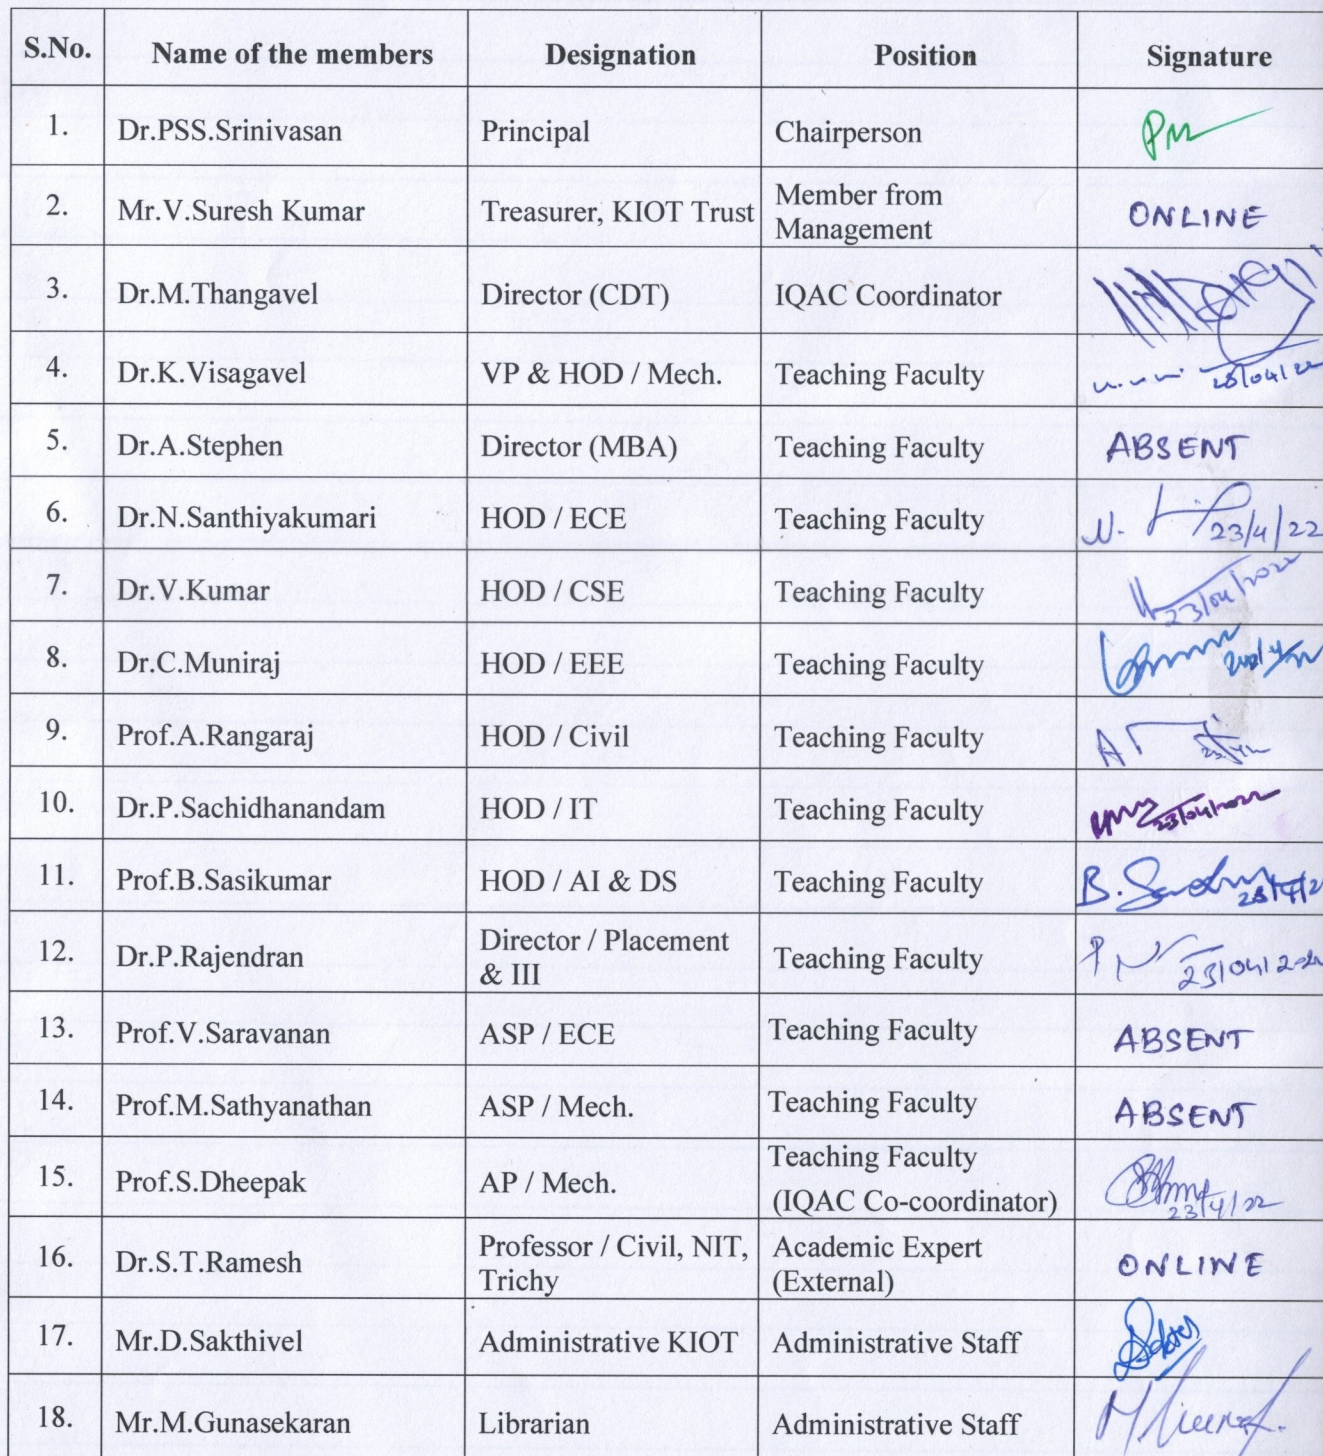 S.No. Name of the members Designation Position Signature
1. Dr.PSS.Srinivasan Principal Chairperson
2. Mr.V.Suresh Kumar Treasurer, KIOT Trust Member from
Management ONLINE
3. Dr.M.Thangavel Director (CDT) IQAC Coordinator
4. Dr.K.Visagavel VP & HOD / Mech. Teaching Faculty
5. Dr.A.Stephen Director (MBA) Teaching Faculty ABSENT
6. Dr.N.Santhiyakumari HOD / ECE Teaching Faculty N. 23/4/22
7. Dr.V.Kumar HOD / CSE Teaching Faculty 23/04/2022
8. Dr.C.Muniraj HOD / EEE Teaching Faculty
9. Prof.A.Rangaraj HOD / Civil Teaching Faculty
10. Dr.P.Sachidhanandam HOD / IT Teaching Faculty 23/04/2022
11. Prof.B.Sasikumar HOD / AI & DS Teaching Faculty B.
12. Dr.P.Rajendran Director / Placement
& III Teaching Faculty
13. Prof.V.Saravanan ASP / ECE Teaching Faculty ABSENT
14. Prof.M.Sathyanathan ASP / Mech. Teaching Faculty ABSENT
15. Prof.S.Dheepak AP / Mech. Teaching Faculty
(IQAC Co-coordinator) 23/4/22
16. Dr.S.T.Ramesh Professor / Civil, NIT,
Trichy Academic Expert
(External) ONLINE
17. Mr.D.Sakthivel Administrative KIOT Administrative Staff
18. Mr.M.Gunasekaran Librarian Administrative Staff